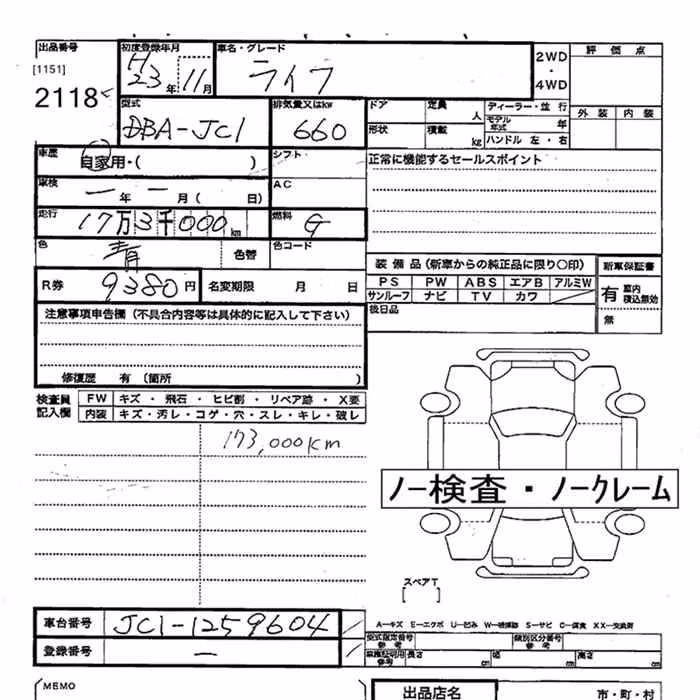 出品番号
[1151]
2118
初度登録年月
H23年 11月
車名・グレード
ライフ
2WD
・
4WD
評価点
外装 内装
型式
DBA-JC1
排気量又はkw
660
ドア
定員 人
形状
積載 kg
ディーラー・並行
モデル年式 年
ハンドル 左・右
車歴
自家用・( )
シフト
正常に機能するセールスポイント
車検
一年 一月( 日)
AC
走行
17万3千000km
燃料
G
色
青
色替
色コード
R券 9380円
名変期限 月 日
装備品(新車からの純正品に限り〇印)
PS PW ABS エアB アルミW
サンルーフ ナビ TV カワ
新車保証書
有 車内積込無効
無
後日品
注意事項申告欄(不具合内容等は具体的に記入して下さい)
修復歴 有(箇所 )
検査員記入欄
FW キズ・飛石・ヒビ割・リペア跡・X要
内装 キズ・汚レ・コゲ・穴・スレ・キレ・破レ
173,000km
ノー検査・ノークレーム
スペアT
[ ]
車台番号 JC1-1259604
登録番号 ー
A-キズ E-エクボ U-凹み W-補修跡 S-サビ C-腐食 XX-交換済
型式指定番号 参考
類別区分番号 参考
長さ cm
幅 cm
高さ cm
MEMO
出品店名
市・町・村